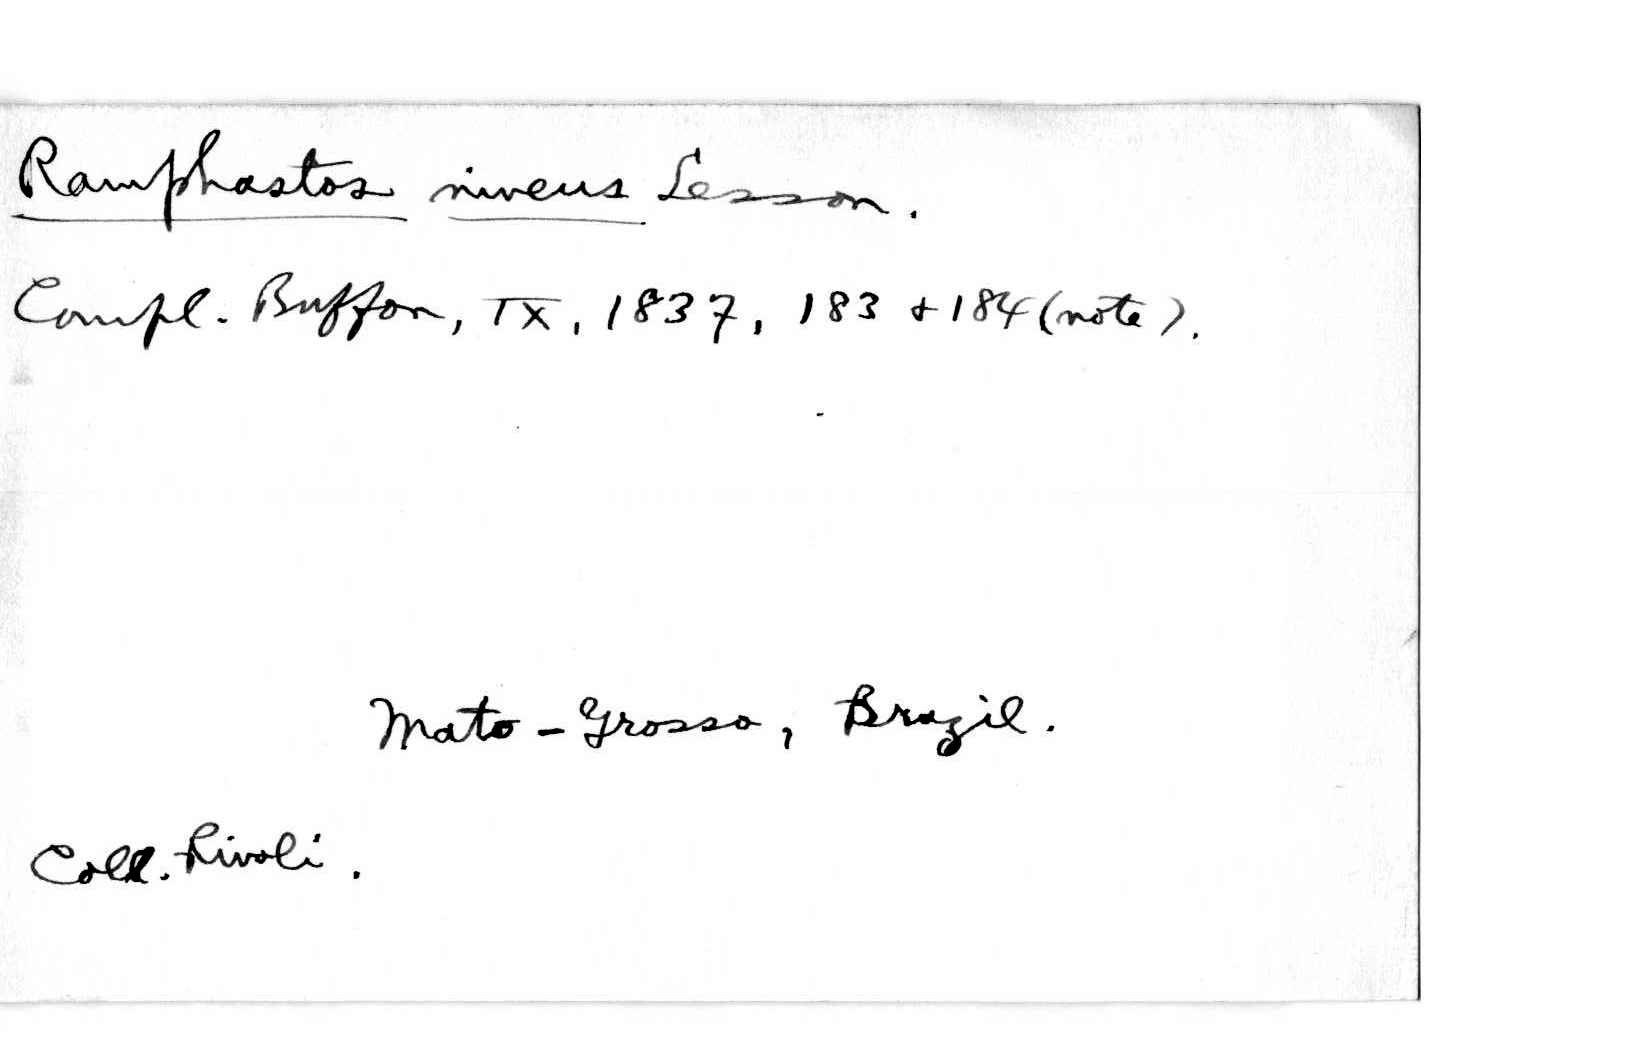 Ramphastos niveus Lesson.
Compl. Buffon, IX, 1837, 183 + 184 (note).
Mato-Grosso, Brazil.
Coll. Rivoli.